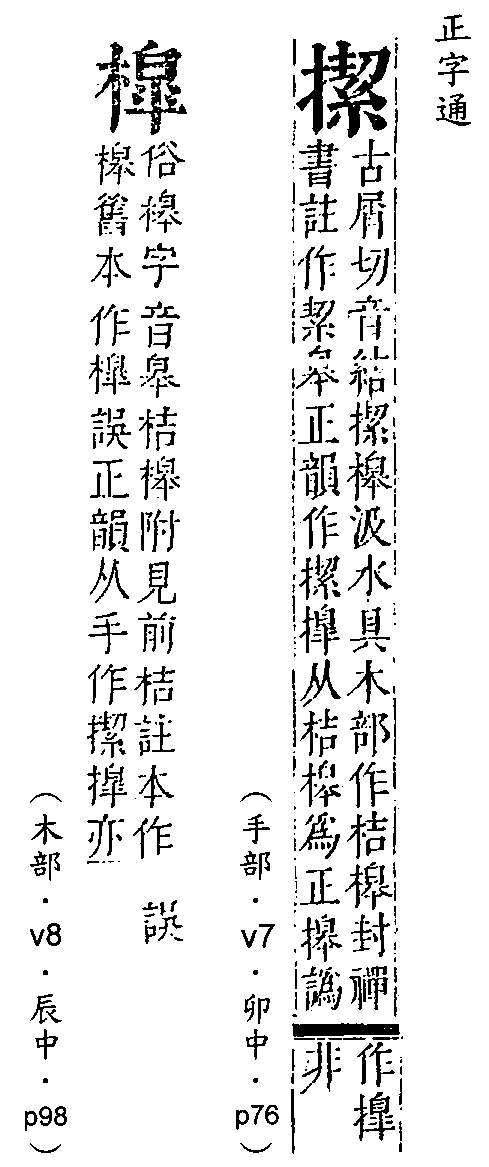 正字通
⿰扌絜
古屑切音結⿰扌絜槔汲水具木部作桔槔封禪
書註作絜皋正韻作⿰扌絜⿰扌皐从桔槔爲正⿰扌皋譌
作⿰扌皐
非
（手部．v7．卯中．p76）
槹
俗槔字音皋桔槔附見前桔註本作
槔舊本作槹誤正韻从手作⿰扌絜⿰扌皐亦
誤
（木部．v8．辰中．p98）